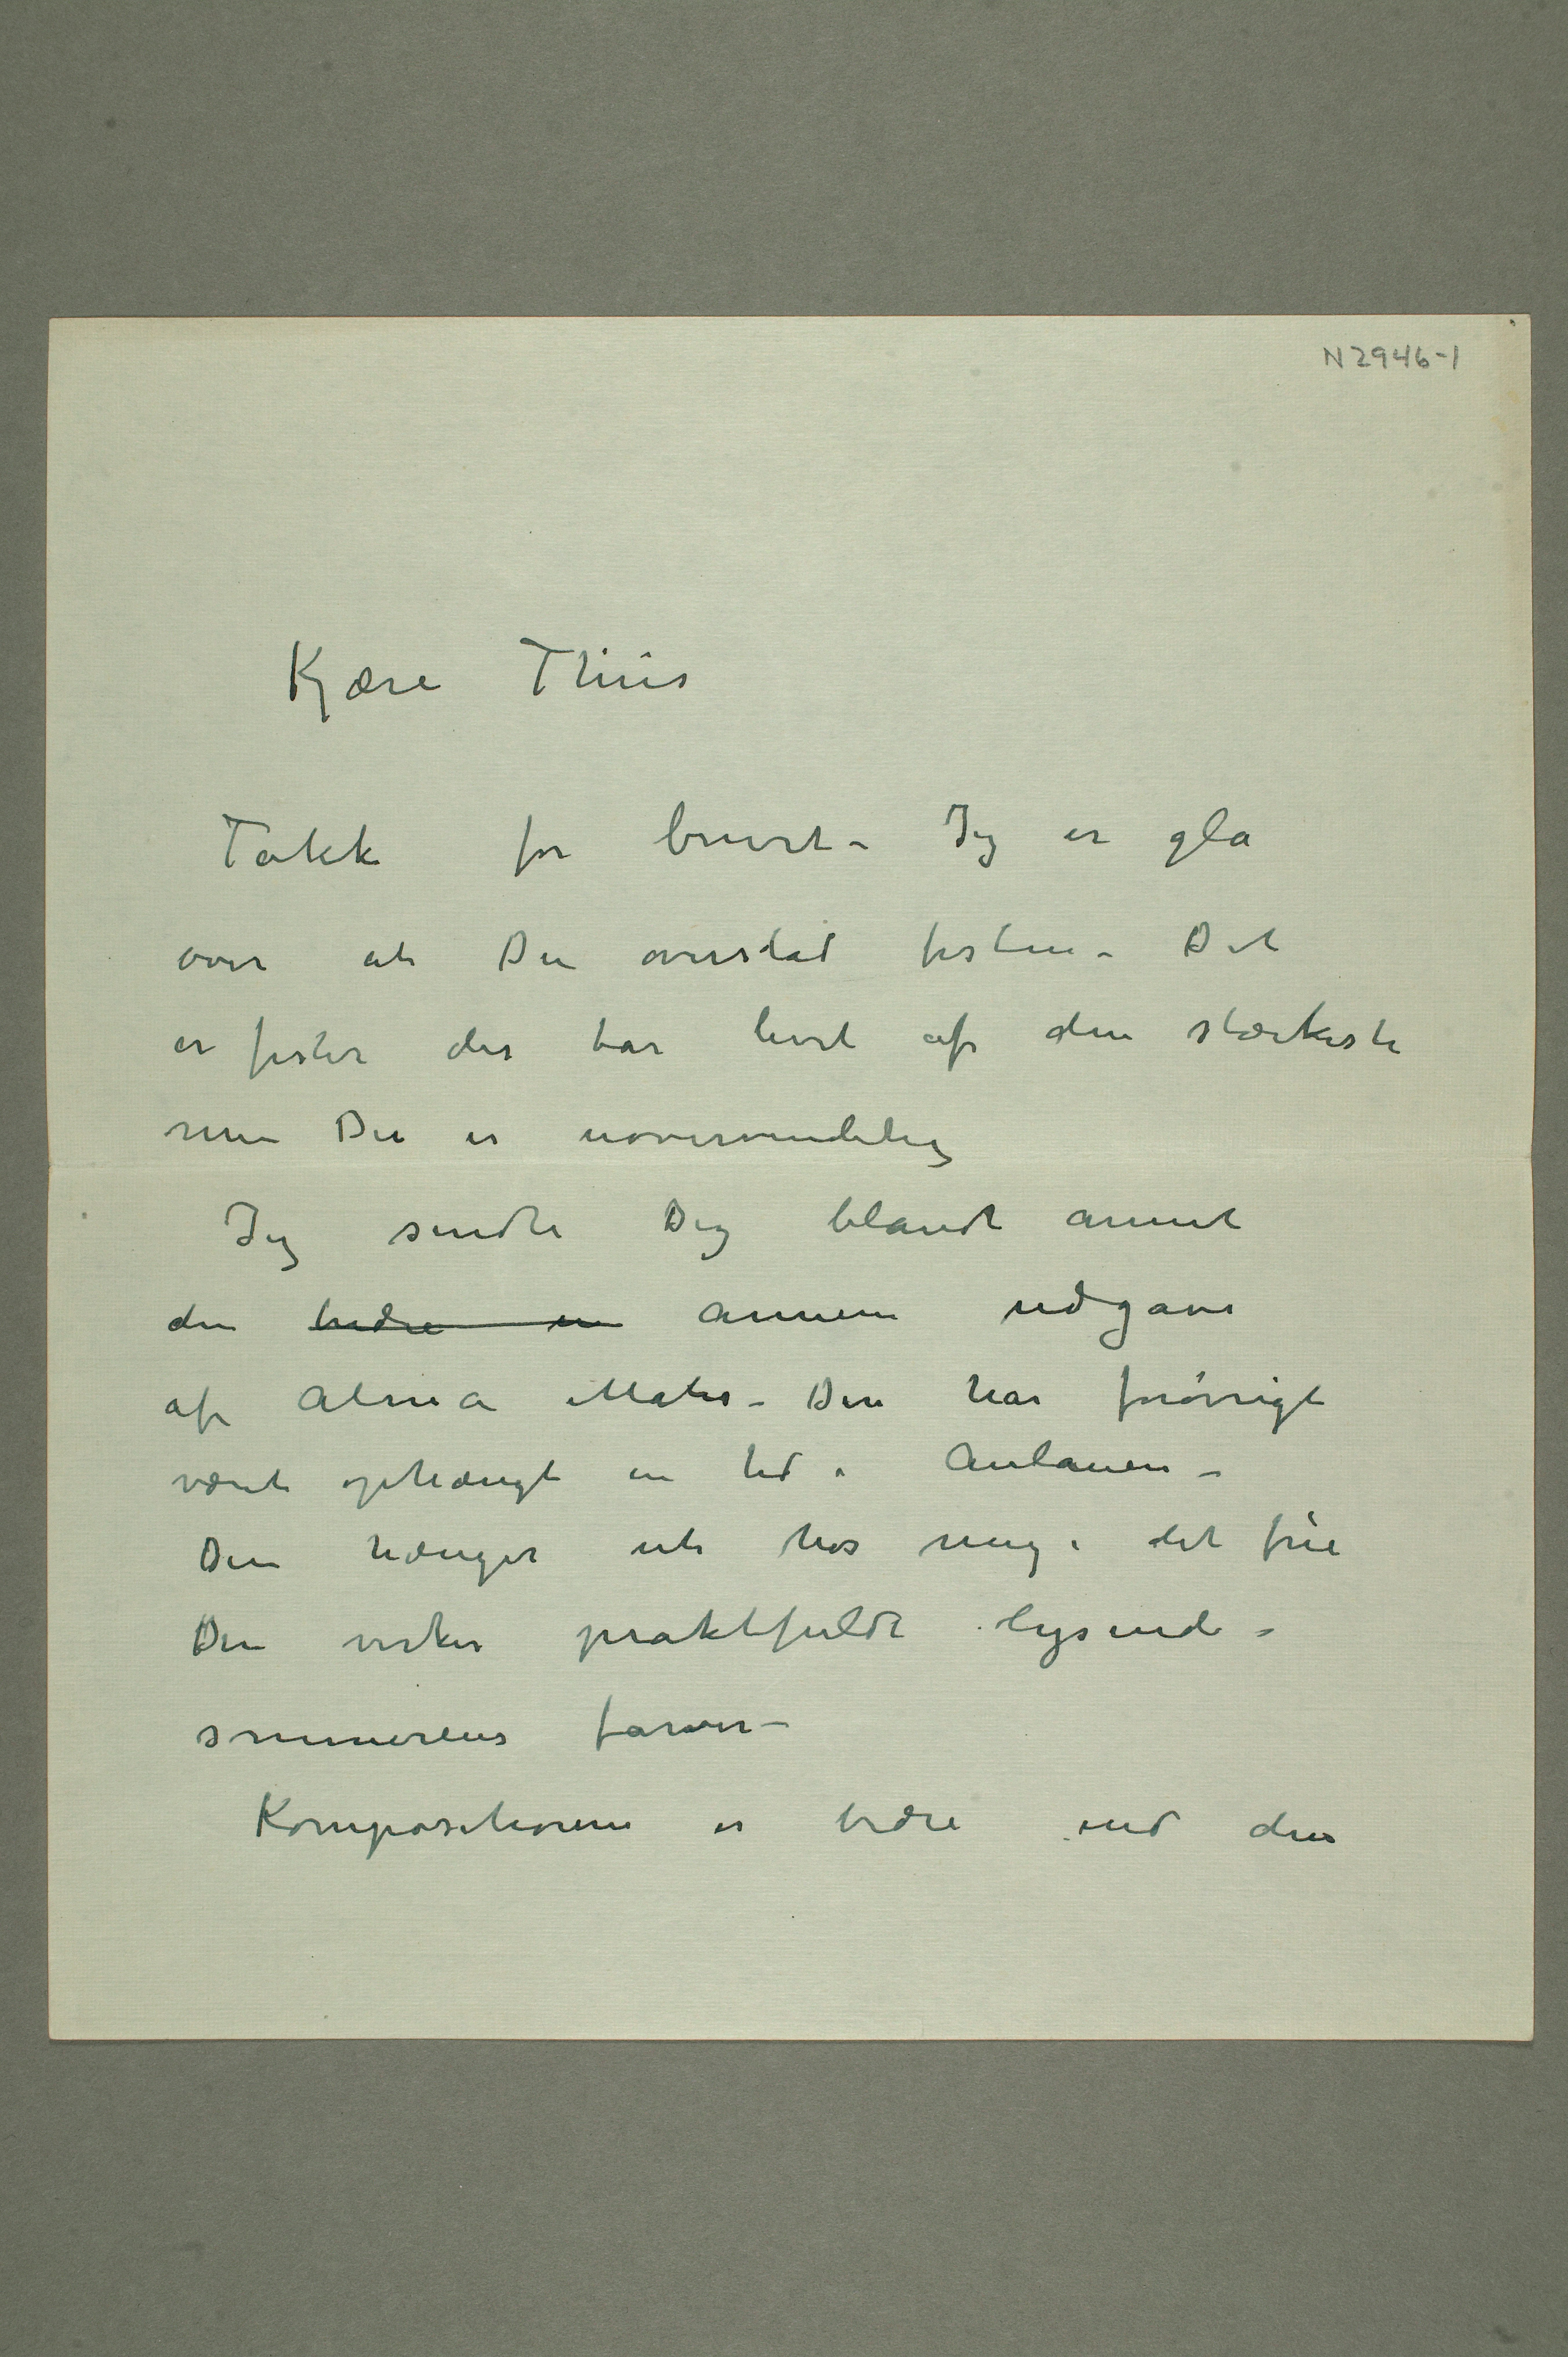 N 2946-1
Kjære Thiis
Takk for brevet – Jeg er gla
over at Du overstod festen – Det
er fester der tar livet af den stærkeste
men Du er uovervindelig
Jeg sendte Dig blandt annet
den bedre en annen udgave
af Alma Mater – Den har forøvrigt
været ophængt en tid i Aulaen –
Den hænger ute hos meg i det frie
Den virker praktfuldt lysende –
sommerens farver –
Kompositionen er bedre end den